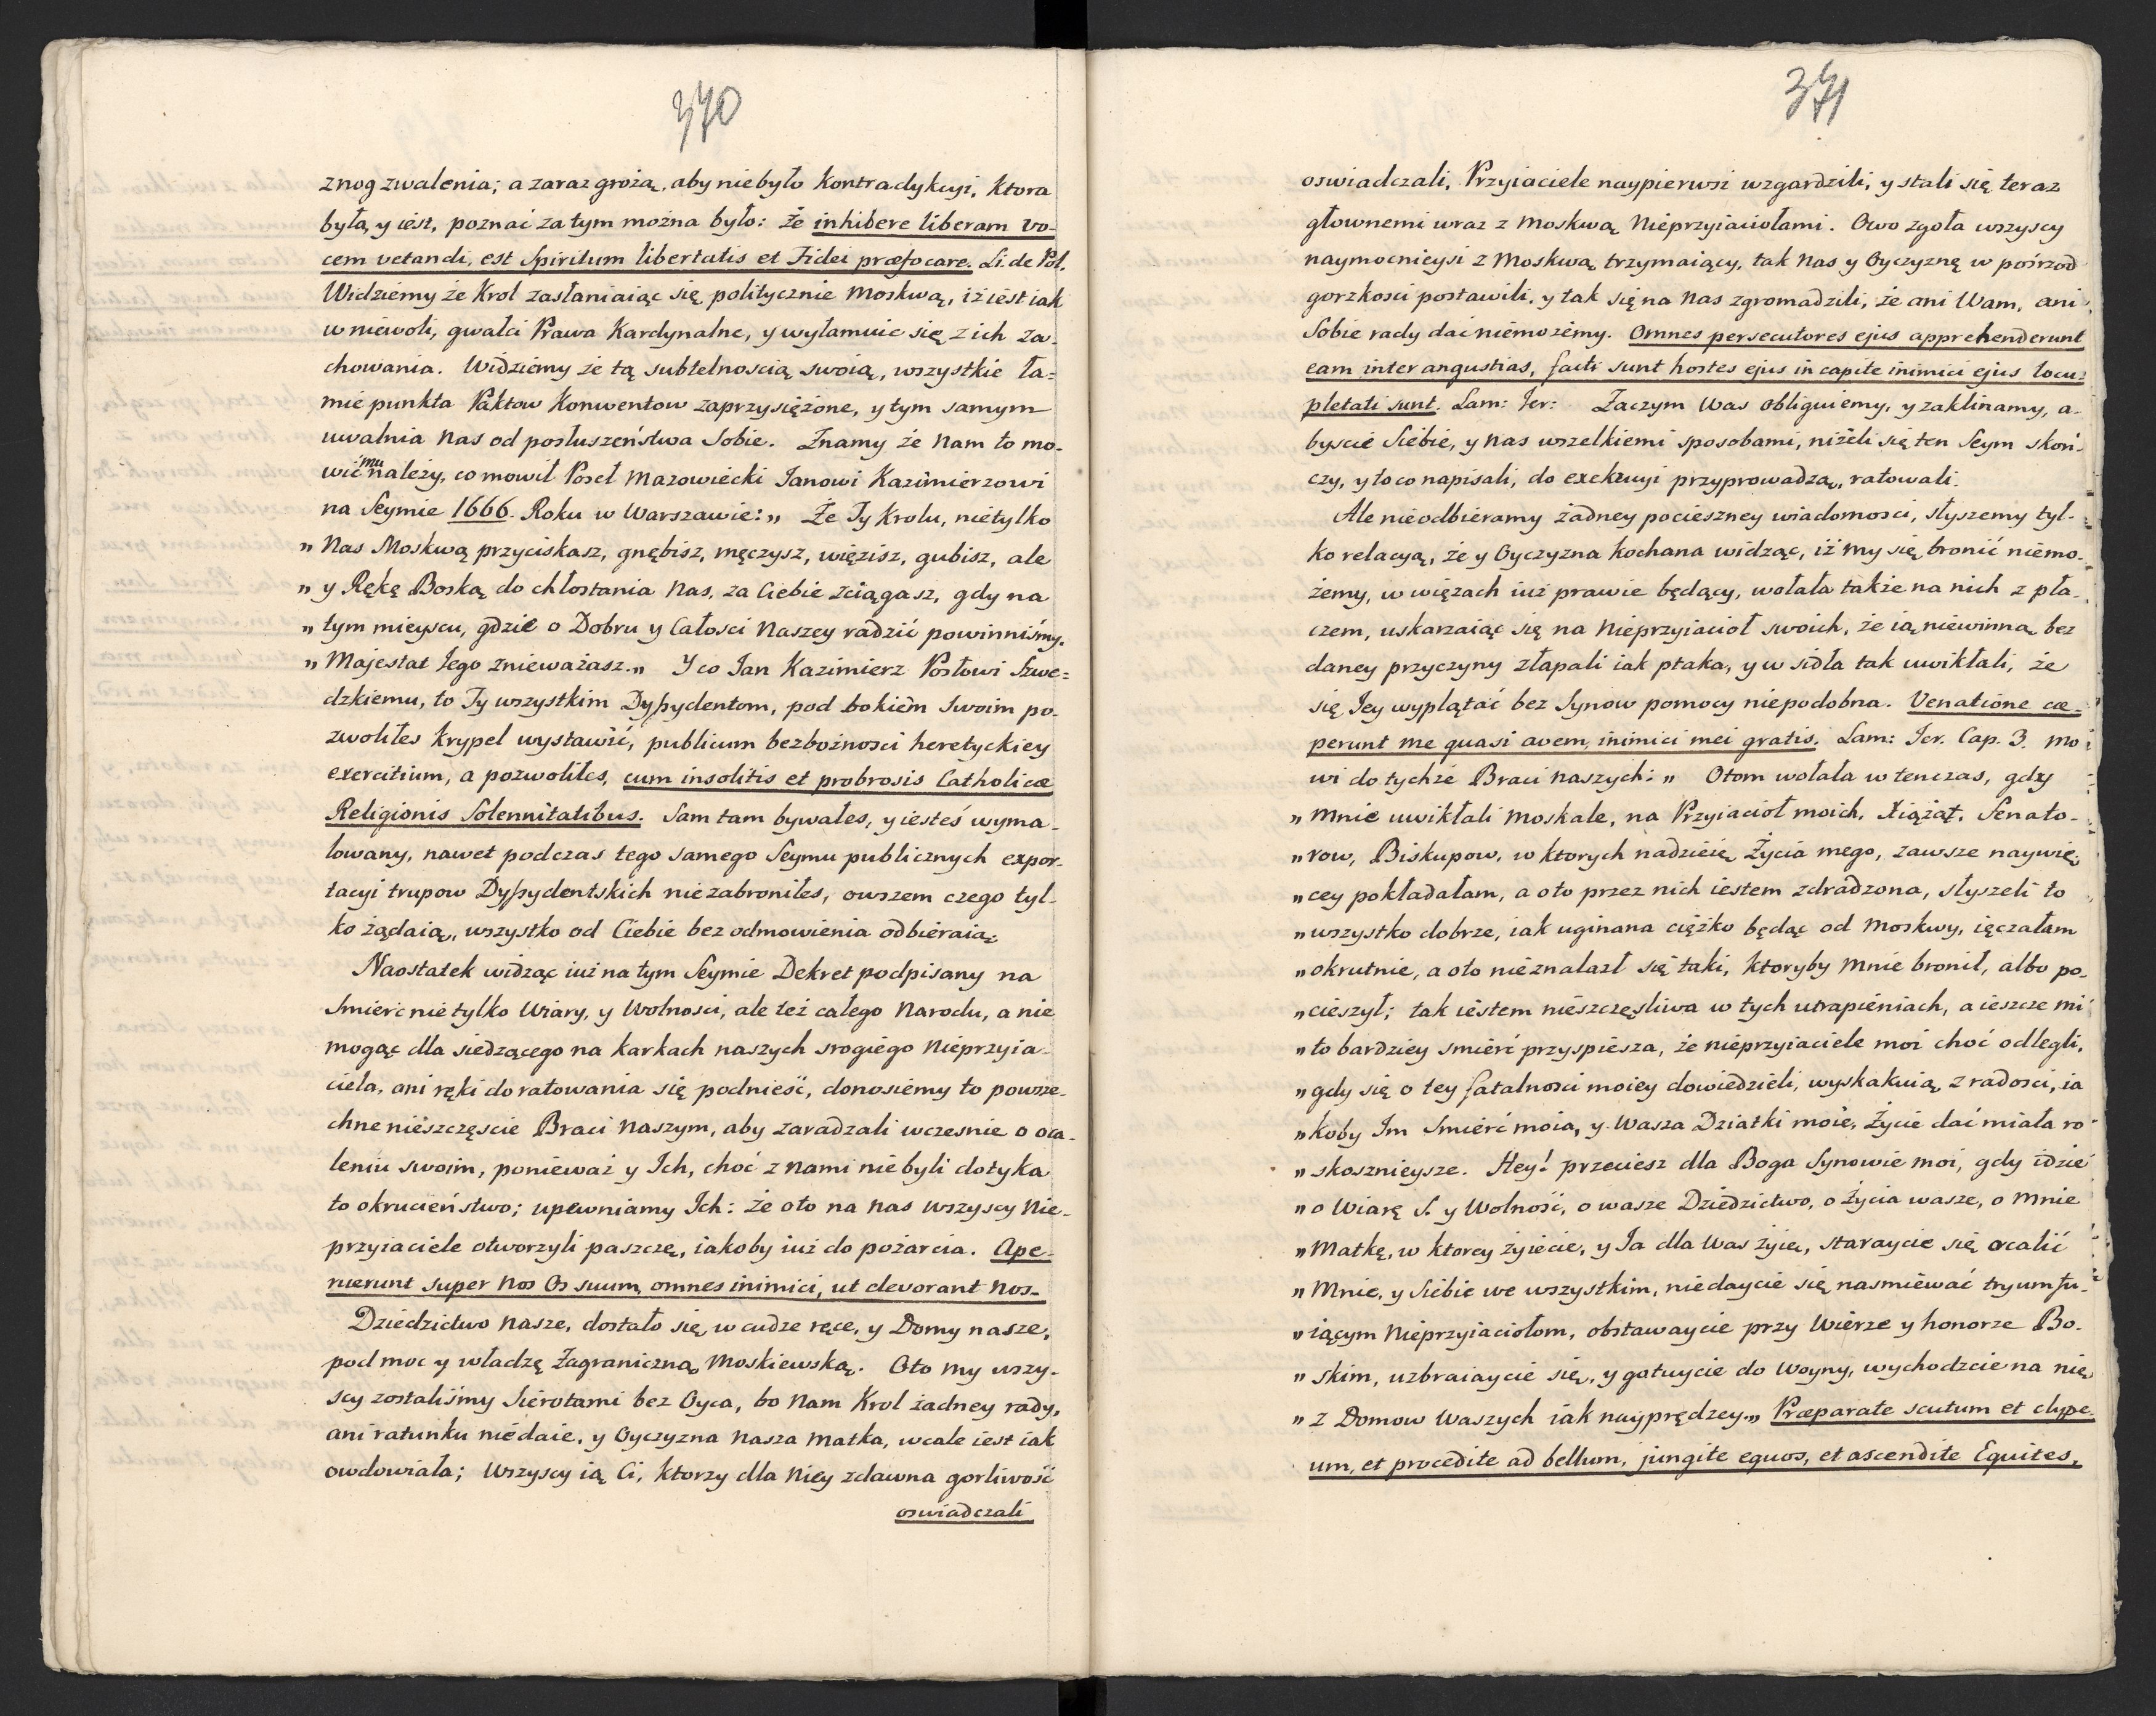 370
znog zwalenia; a zaraz grożą, aby niebyło Kontradykcyi, Ktora
była, y iest, poznać za tym można było: że inhibere liberam vo-
cem vetandi, est Spiritum libertatis et Fidei præfocare. Li. de Pol.
Widziemy że Krol zasłaniaiąc się politycznie Moskwą, iż iest iak
w niewoli, gwałci Prawa Kardynalne, y wyłamuie się z ich za-
chowania. Widziemy że tą subtelnoscią swoią, wszystkie ła=
mie punkta Paktow Konwentow zaprzysiężone, y tym samym
uwalnia Nas od posłuszeństwa Sobie. Znamy że Nam to mo-
wić mu należy, co mowił Poseł Mazowiecki Janowi Kazimierzowi
na Seymie 1666. Roku w Warszawie: „ Że Ty Krolu, nietylko
„ Nas Moskwą przyciskasz, gnębisz, męczysz, więzisz, gubisz, ale
„ y Rękę Boską do chłostania Nas, za Ciebie zciągasz, gdy na
„ tym mieyscu, gdzie o Dobru y Całosci Naszey radzić powinniśmy,
„ Majestat Jego znieważasz. „ Y co Jan Kazimierz Posłowi Szwe=
dzkiemu, to Ty wszystkim Dyssydentom, pod bokiem Swoim po-
zwoliłes Krypel wystawić, publicum bezbożnosci heretyckiey
exercitium, a pozwoliłes, cum insolitis et probrosis Catholicæ
Religionis Solennitatibus. Sam tam bywałes, y iesteś wyma-
lowany, nawet podczas tego samego Seymu publicznych expor-
tacyi trupow Dyssydentskich niezabroniłes, owszem czego tyl-
ko żądaią, wszystko od Ciebie bez odmowienia odbieraią.
Naostatek widząc iuż na tym Seymie Dekret podpisany na
Smierć nie tylko Wiary, y Wolnosci, ale też całego Narodu, a nie
mogąc dla siedzącego na karkach naszych srogiego Nieprzyia-
ciela, ani ręki do ratowania się podnieść, donosiemy to powsze-
chne nieszczęscie Braci Naszym, aby zaradzali wczesnie o oca-
leniu swoim, ponieważ y Ich, choć z nami nie byli dotyka
to okrucieństwo; upewniamy Ich: że oto na Nas wszyscy Nie-
przyiaciele otworzyli paszczę, iakoby iuż do pożarcia. Ape-
ruerunt super Nos Os suum, omnes inimici, ut devorant Nos.
Dziedzictwo Nasze, dostało się w cudze ręce, y Domy nasze,
pod moc y władzę Zagraniczną Moskiewską. Oto my wszy-
scy zostaliśmy Sierotami bez Oyca, bo Nam Krol żadney rady,
ani ratunku niedaie, y Oyczyzna Nasza Matka, wcale iest iak
owdowiała; Wszyscy ią Ci, Ktorzy dla Niey zdawna gorliwość
oswiadczali
371
oswiadczali, Przyiaciele naypierwsi wzgardzili, y stali się teraz
głownemi wraz z Moskwą Nieprzyiaciołami. Owo zgoła wszyscy
naymocnieysi z Moskwą trzymaiący, tak Nas y Oyczyznę w pośrzod
gorzkosci postawili, y tak się na Nas zgromadzili, że ani Wam, ani
Sobie rady dać niemożemy. Omnes persecutores ejus apprehenderunt
eam inter angustias, facti sunt hostes ejus in capite inimici ejus locu=
pletati sunt. Lam: Jer: Zaczym Was Obliguiemy, y zaklinamy, a-
byscie Siebie, y Nas wszelkiemi sposobami, niżeli się ten Seym skoń-
czy, y to co napisali, do exekucyi przyprowadzą, ratowali.
Ale nieodbieramy żadney pocieszney wiadomosci, słyszemy tyl-
ko relacyą, że y Oyczyzna Kochana widząc, iż my się bronić niemo-
żemy, w więzach iuż prawie będący, wołała także na nich z pła-
czem, uskarzaiąc się na Nieprzyiacioł swoich, że ią niewinną bez
daney przyczyny złapali iak ptaka, y w sidła tak uwikłali, że
się Jey wyplątać bez Synow pomocy niepodobna. Venatione cœ-
perunt me quasi avem, inimici mei gratis. Lam: Jer. Cap. 3. Mo
wi do tychże Braci naszych: „ Otom wołała w tenczas, gdy
„ Mnie uwikłali Moskale, na Przyiacioł moich, Xiążąt, Senato-
„ row, Biskupow, w ktorych nadzieię Życia mego, zawsze naywię-
„ cey pokładałam, a oto przez nich iestem zdradzona, słyszeli to
„ wszystko dobrze, iak uginana ciężko będąc od Moskwy, ięczałam
„ okrutnie, a oto nieznalazł się taki, Ktoryby Mnie bronił, albo po-
„ cieszył; tak iestem nieszczęsliwa w tych utrapieniach, a ieszcze mi
„ to bardziey smierć przyspiesza, że nieprzyiaciele moi choć odlegli,
„ gdy się o tey fatalnosci moiey dowiedzieli, wyskakuią z radosci, ia
„ koby Im Smierć moia, y Wasza Dziatki moie, życie dać miała ro-
„ skosznieysze. Hey! przeciesz dla Boga Synowie moi, gdy idzie
„ o Wiarę S. y Wolność, o wasze Dziedzictwo, o Życia wasze, o Mnie
„ Matkę, w ktorey żyiecie, y Ja dla Was żyię, staraycie się ocalić
„ Mnie, y Siebie we wszystkim, niedaycie się nasmiewać tryumfu-
„ iącym Nieprzyiaciołom, obstawaycie przy Wierze y honorze Bo-
„ skim, uzbraiaycie się, y gotuycie do Woyny, wychodzcie na nię
„ z Domow Waszych iak nayprędzey. „ Præparate scutum et clype-
um, et procedite ad bellum, jungite equos, et ascendite Equites,